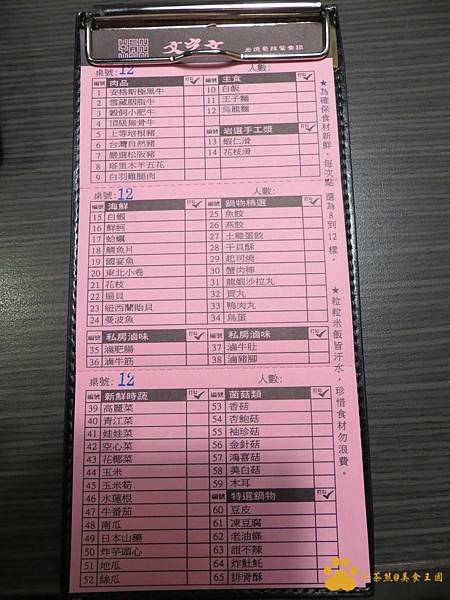 文字文
桌號: 12 人數:
編號 肉品 打勾
1 安格斯極黑牛
2 雪藏胭脂牛
3 穀飼小肥牛
4 頂級無骨牛
5 上等培根豬
6 台灣自然豬
7 嚴選松阪豬
8 塔里木羊五花
9 白羽雞腿肉
編號 主食 打勾
10 白飯
11 王子麵
12 烏龍麵
編號 岩選手工漿 打勾
13 蝦仁滑
14 花枝滑
桌號: 12 人數:
編號 海鮮 打勾
15 白蝦
16 鮮蚵
17 蛤蠣
18 鯛魚片
19 國宴魚
20 東北小卷
21 花枝
22 扇貝
23 紐西蘭貽貝
24 曼波魚
編號 鍋物精選 打勾
25 魚餃
26 燕餃
27 土雞蛋餃
28 干貝酥
29 起司燒
30 蟹肉棒
31 龍蝦沙拉丸
32 貢丸
33 鴨肉丸
34 鳥蛋
編號 私房滷味 打勾
35 滷肥腸
36 滷牛筋
編號 私房滷味 打勾
37 滷牛肚
38 滷豬腳
桌號: 12 人數:
編號 新鮮時蔬 打勾
39 高麗菜
40 青江菜
41 娃娃菜
42 空心菜
43 花椰菜
44 玉米
45 玉米筍
46 水蓮根
47 牛番茄
48 南瓜
49 日本山藥
50 炸芋頭心
51 地瓜
52 絲瓜
編號 菌菇類 打勾
53 香菇
54 杏鮑菇
55 袖珍菇
56 金針菇
57 鴻喜菇
58 美白菇
59 木耳
編號 特選鍋物 打勾
60 豆皮
61 凍豆腐
62 老油條
63 甜不辣
64 炸魠魠
65 排骨酥
★為確保食材新鮮,每次點選為8到12樣。
★粒粒米飯皆汗水,珍惜食材勿浪費。
茶熊@美食王國